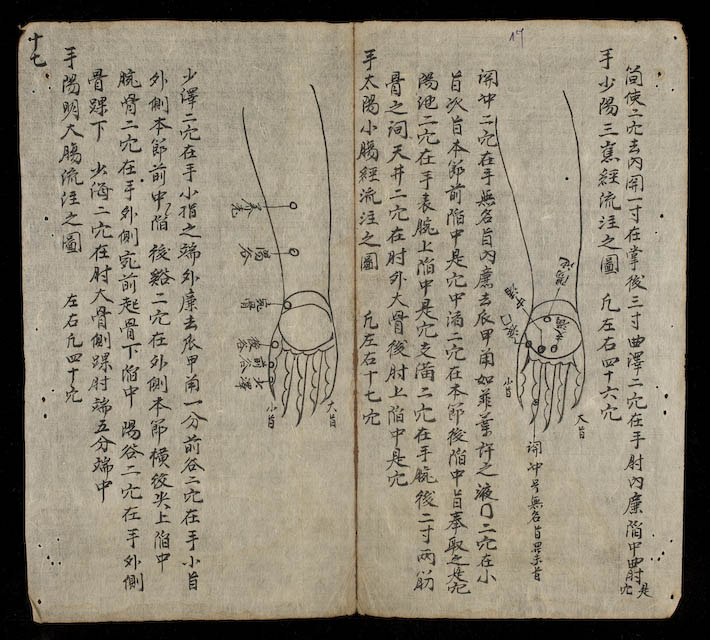 17
间使二穴去內関一寸在掌後三寸曲澤二穴在手肘內廉陷中曲肘是穴
手少陽三焦經流注之圖 凢左右四十六穴
大旨
小旨
関冲二穴在手無名旨內廉去爪甲角如韮葉許之液门二穴在小
旨次旨本節前陷中是穴中渚二穴在本節後陷中旨奉取之是穴
陽池二穴在手表腕上陷中是穴支溝二穴在手腕後二寸両筋
骨之间天井二穴在肘外大骨後肘上陷中是穴
手太陽小腸經流注之圖 凢左右十七穴
養老
陽谷
腕骨
後谷
前谷
少澤
大旨
小旨
少澤二穴在手小指之端外廉去爪甲角一分前谷二穴在手小旨
外側本節前中陷後谿二穴在外側本節橫紋尖上陷中
腕骨二穴在手外側宛前起骨下陷中 陽谷二穴在手外側
骨踝下 少海二穴在肘大骨側踝肘端五分端中
手陽明大腸流注之圖 左右凢四十穴
十七